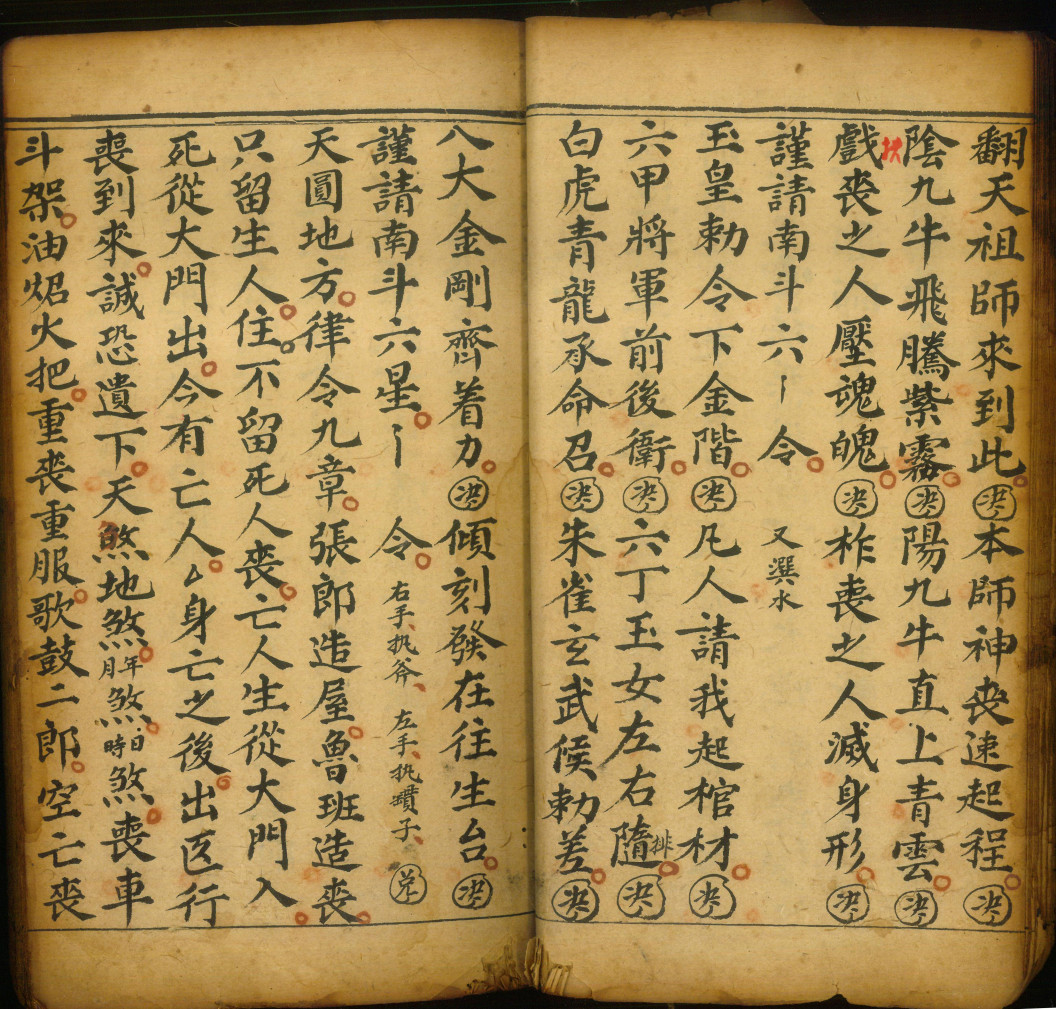 翻天祖師來到此。決本師神丧速起程。決
陰九牛飛騰紫霧。決陽九牛直上青雲。決
戲丧之人壓魂魄。決柞喪之人滅身形。決
扶
謹請南斗六〡令。又潠水
玉皇勅令下金階。決凡人請我起棺材。決
六甲將軍前後衛。決六丁玉女左右隨排。決
白虎青龍承命召。決朱雀玄武候勅差。決
八大金剛齊着力。決傾刻發在往生台。決
謹請南斗六星。〡令。右手执斧、左手执㼾子、
天圓地方。律令九章。張郎造屋。魯班造丧。
只留生人住。不留死人丧。亡人生從大門入。
死從大門出。今有亡人。厶身亡之後。出㐫行
喪到來。誠恐遺下。天煞地煞。年月煞。日時煞。喪車
斗架。油炤火把。重丧重服。歌鼓二郎。空亡丧